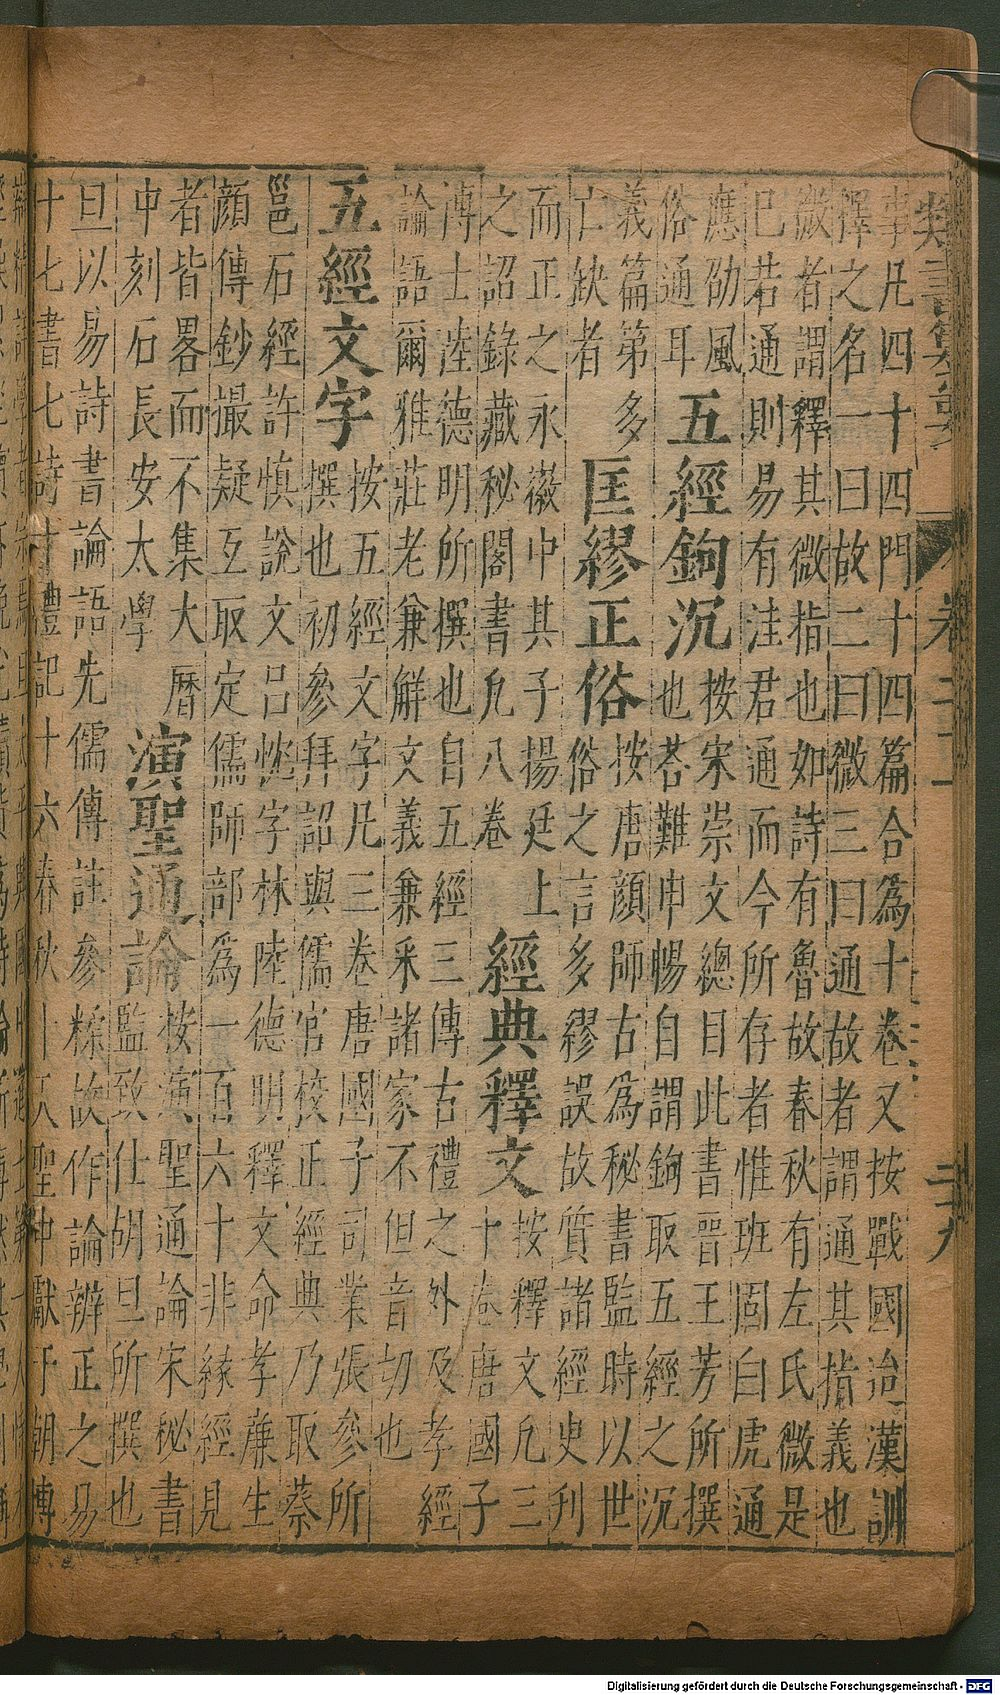 事凡四十四門十四四篇合為十卷又按戰國迨漢訓
釋之名一曰故二曰微三曰通故者謂通其指義也
微者謂釋其微指也如詩有魯故春秋有左氏微是
已若通則易有洼君通而今所存者惟班固白虎通
應劭風
俗通耳
五經鉤沉
按宋崇文總目此書晉王芳所撰
也荅難申暢自謂鉤取五經之沉
義篇第多
亡缺者
匡繆正俗
按唐顏師古為秘書監時以世
俗之言多繆誤故質諸經史刋
而正之永徽中其子揚廷上
之詔錄藏秘閣書凡八卷
經典釋文
按釋文凡三
十卷唐國子
博士陸德明所撰也自五經三傳古禮之外及孝經
論語爾雅莊老兼解文義兼釆諸家不但音切也
五經文字
按五經文字凡三卷唐國子司業張參所
撰也初參拜詔與儒官校正經典乃取蔡
邕石經許慎說文呂忱字林陸德明釋文命孝廉生
顏傳鈔撮疑互取定儒師部為一百六十非緣經見
者皆畧而不集大曆
中刻石長安太學
演聖通論
按演聖通論宋秘書
監致仕胡旦所撰也
旦以易詩書論語先儒傳註參糅故作論辨正之易
十七書七詩十禮記十六春秋十天聖中獻于朝博
Digitalisierung gefördert durch die Deutsche Forschungsgemeinschaft - DFG